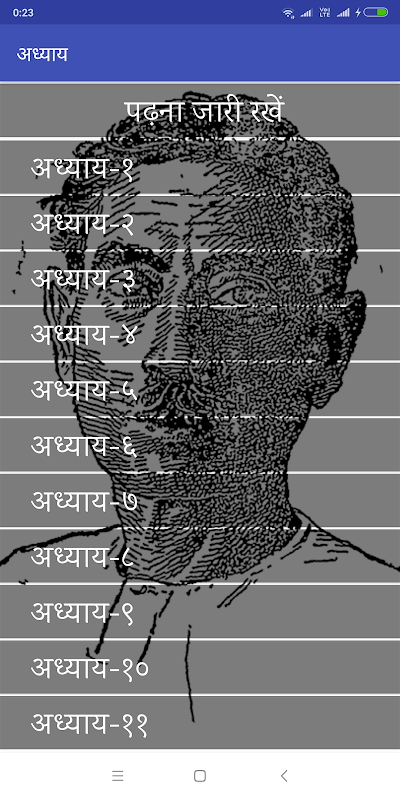 0:23
Vo) LTE
अध्याय
पढ़ना जारी रखें
अध्याय-१
अध्याय-२
अध्याय-३
अध्याय-४
अध्याय-५
अध्याय-६
अध्याय-७
अध्याय-८
अध्याय-९
अध्याय-१०
अध्याय-११